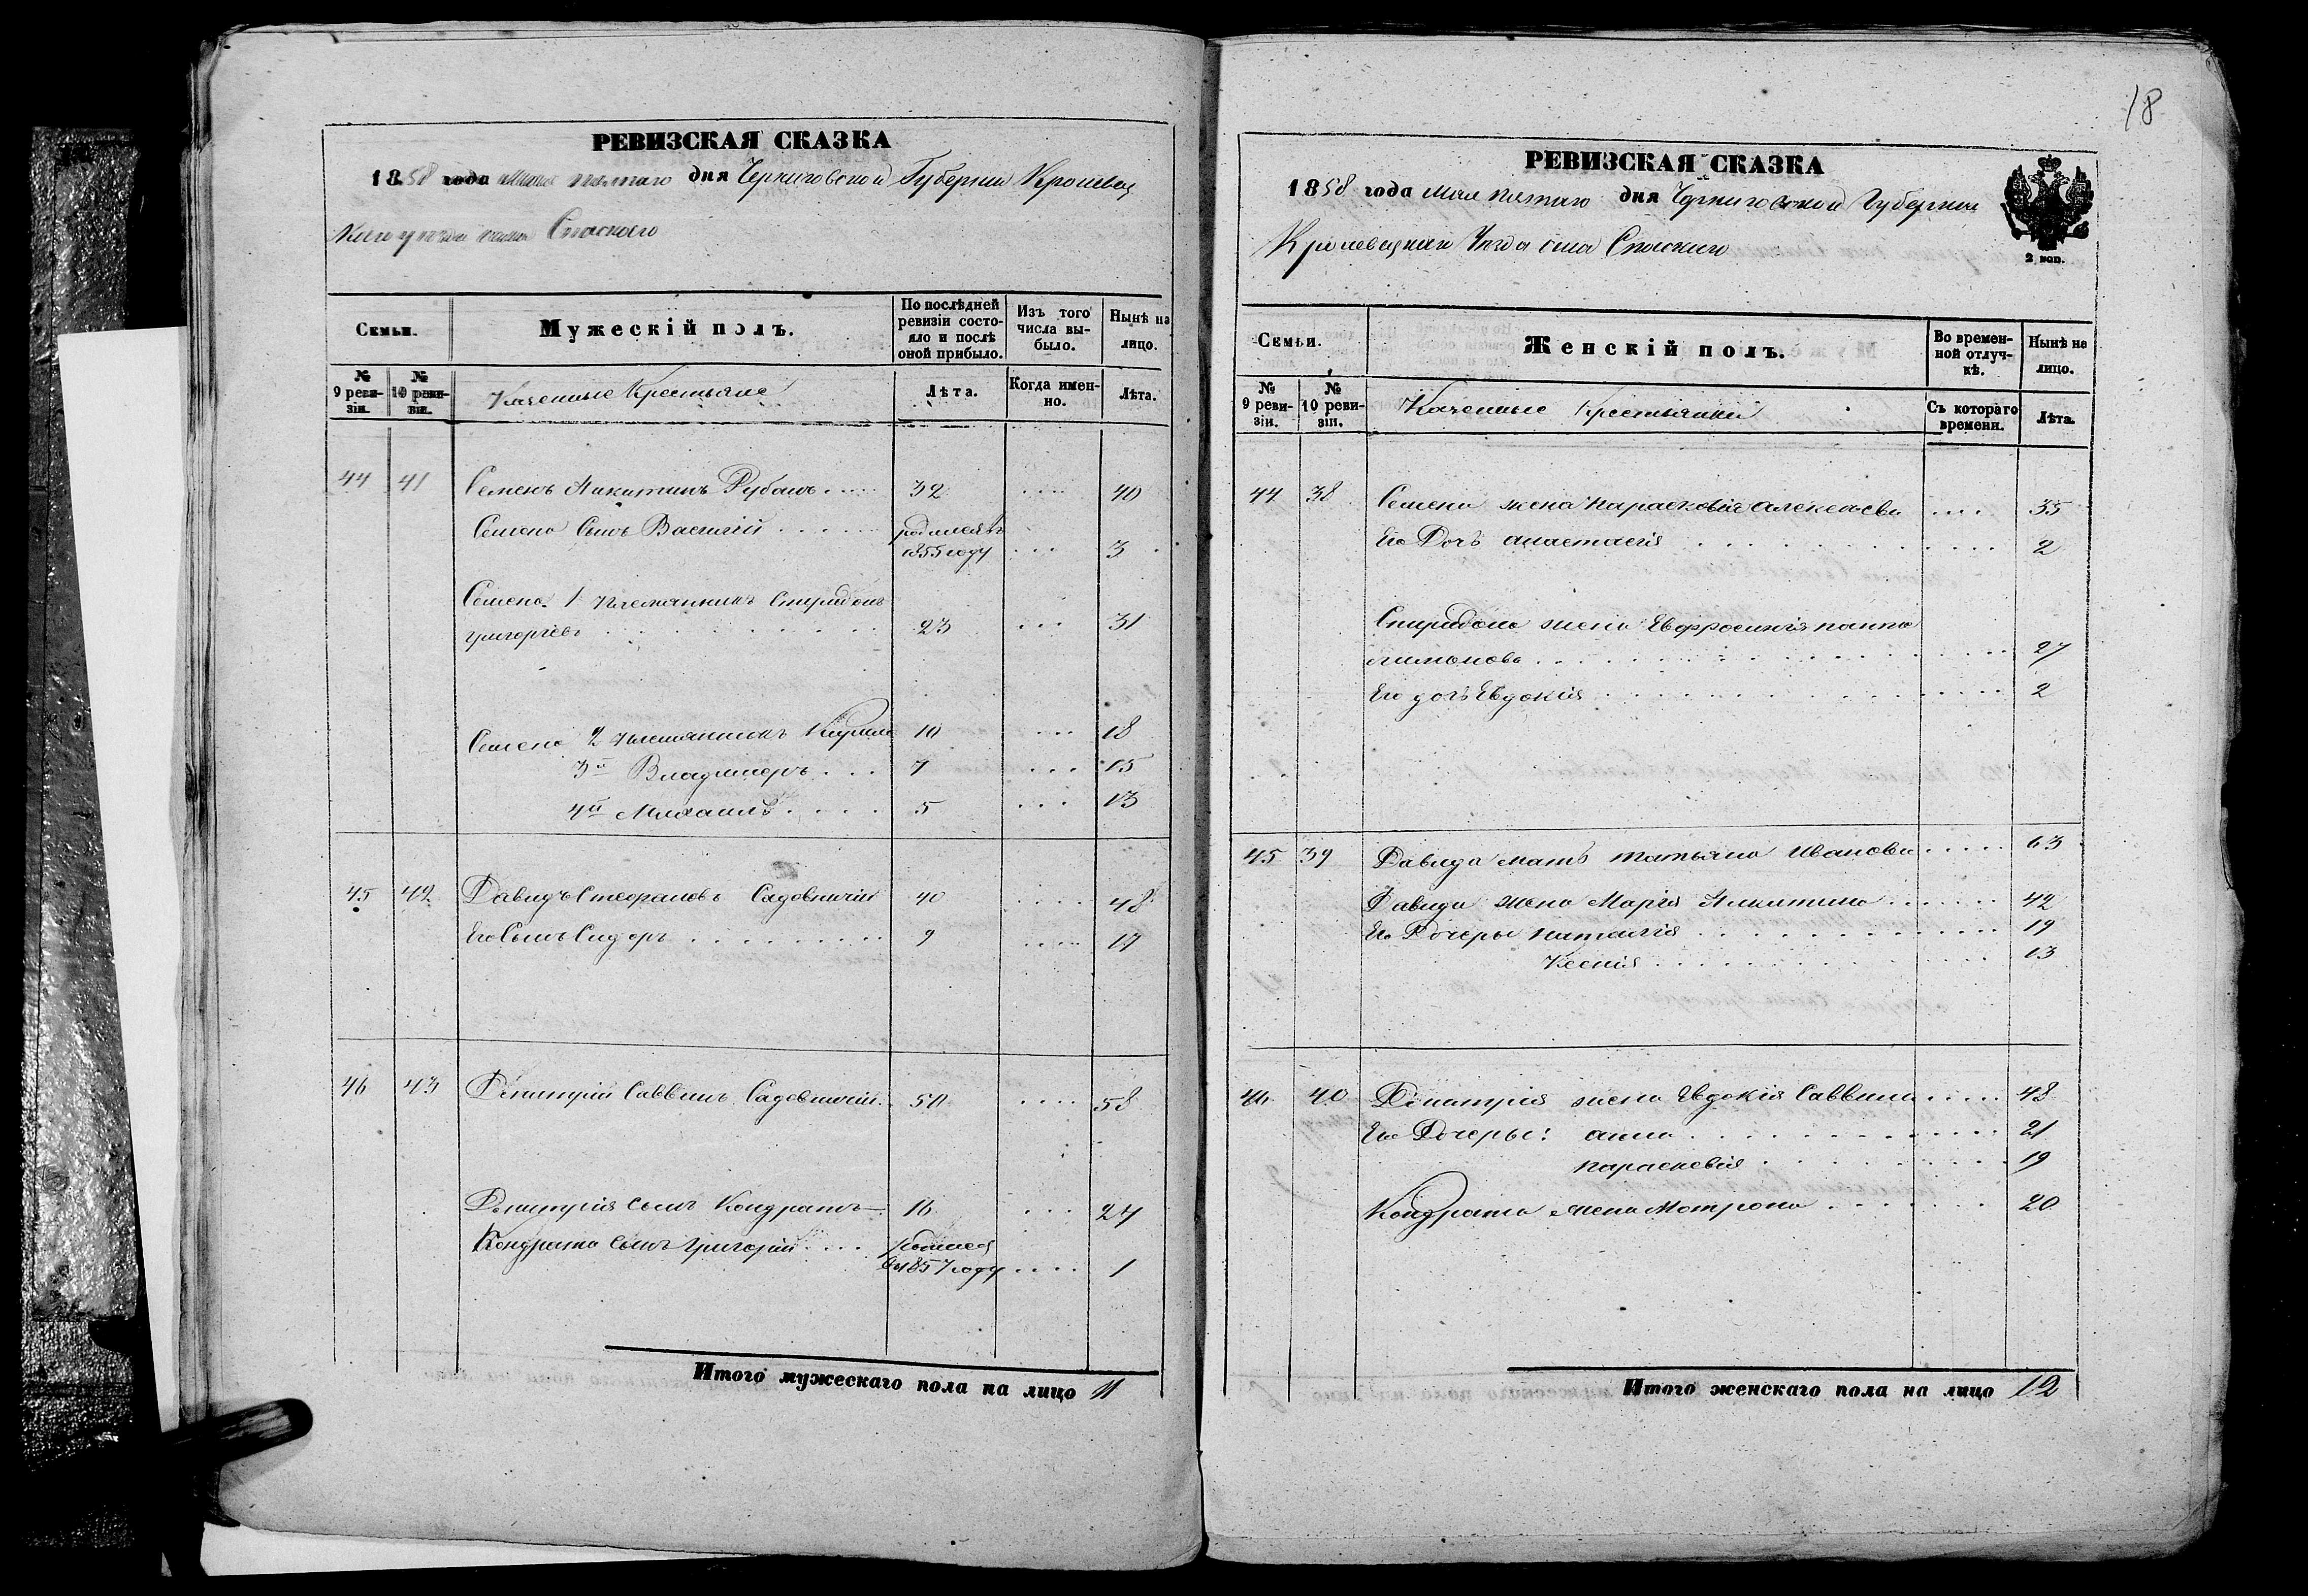 РЕВИЗСКАЯ СКАЗКА
1858 года мая пятаго дня Черниговской Губернии Кролевец
каго уезда села Спаскаго
Семьи.
Мужескій полъ.
По послѣдней ревизіи состояло и послѣ оной прибыло.
Изъ того числа выбыло.
Нынѣ на лицо.
№ 9 ревизіи.
№ 10 ревизіи.
Казенные Крестьяне
Лѣта.
Когда именно.
Лѣта.
44 41 Семенъ Никитинъ Рубанъ .... 32 .... 40
Семена Сынъ Василій ..... родился въ
1855 году ... 3
Семена 1 племянникъ Спиридонъ
григорьевъ ......... 23 ... 31
Семена 2 племянникъ Кирило 10 ... 18
3й Владимеръ ... 7 .... 15
4й Михаилъ .... 5 ... 13
45 42 Давидъ Стефановъ Садовничій 40 .... 48
Его Сынъ Сидоръ ......... 9 .... 17
46 43 Димитрій Саввинъ Садовничій. 50 .... 58
Димитрія сынъ Кондратъ 16 ... 24
Кондрата сынъ григорій .... родился
въ 1857 году .... 1
Итого мужескаго пола на лицо 11
18
РЕВИЗСКАЯ СКАЗКА
1858 года мая пятаго дня Черниговской Губернии
Кролевецкаго Уезда села Спаскаго
2 коп.
Семьи.
Женскій полъ.
Во временной отлучкѣ.
Нынѣ на лицо.
№ 9 ревизіи.
№ 10 ревизіи.
Казенные Крестьянки
Съ котораго времени.
Лѣта.
44 38 Семена жена Парасковія алексеева .... 35
Его Дочь анастасія ............ 2
Спиридона жена Евфросинія панте
лимонова ............ 27
Его дочь Евдокія ............ 2
45 39 Давида мать татьяна Иванова ..... 63
Давида жена Марія Никитина ....... 42
Его Дочеры наталія ............ 19
Ксенія ............ 13
46 40 Димитрія жена Евдокія Саввина ..... 48
Его Дочеры: анна ............ 21
параскевія ......... 19
Кондрата жена Мотрона ....... 20
Итого женскаго пола на лицо 12